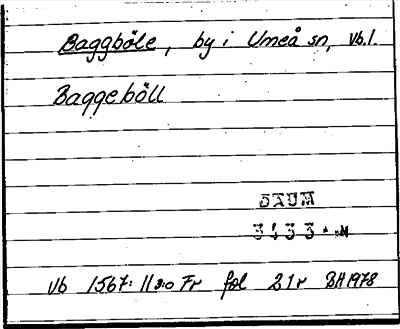 Baggböle, by i Umeå sn, Vb.l.
Baggeböll
DAUM
3433
Vb 1567: 11 Fr fol 21r BH 1978